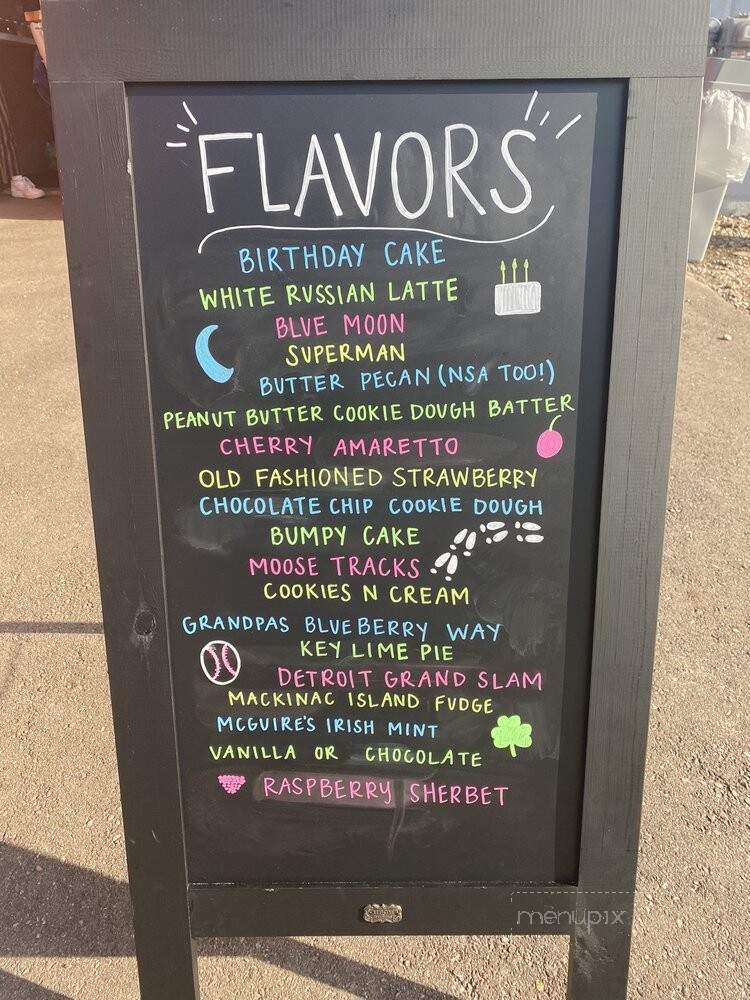 FLAVORS
BIRTHDAY CAKE
WHITE RUSSIAN LATTE
BLUE MOON
SUPERMAN
BUTTER PECAN (NSA TOO!)
PEANUT BUTTER COOKIE DOUGH BATTER
CHERRY AMARETTO
OLD FASHIONED STRAWBERRY
CHOCOLATE CHIP COOKIE DOUGH
BUMPY CAKE
MOOSE TRACKS
COOKIES N CREAM
GRANDPAS BLUEBERRY WAY
KEY LIME PIE
DETROIT GRAND SLAM
MACKINAC ISLAND FUDGE
MCGUIRE'S IRISH MINT
VANILLA OR CHOCOLATE
RASPBERRY SHERBET
menupix